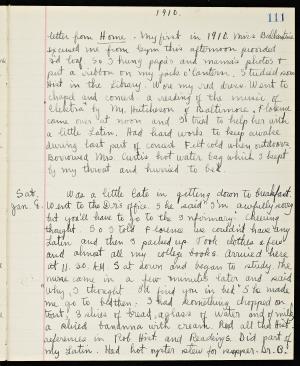 1910.
111
letter from Home. My first in 1910. Miss Ballantine
excused me from Gym this afternoon provided
I'd loaf. So I hung papa's and mama's photos &
put a ribbon on my jack o'lantern. I studied some
Hist in the Library. Wore my red dress. Went to
chapel and concert a reading of the music of
Elektra by Mr. Hutcheson of Baltimore. Florence
came over at noon and I tried to help her with
a little Latin. Had hard work to keep awake
during last part of concert & felt cold when outdoors
Borrowed Miss Curtis hot water bag which I kept
by my throat and hurried to bed.
Sat. Was a little late in getting down to breakfast.
Jan 8. Went to the Dr's office. She said "I'm awfully sorry
but you'll have to go to the Infirmary." Cheering
thought. So I told Florence we couldn't have any
Latin and then I packed up. Took clothes a few
and almost all my college books. Arrived here
at 11.30 A.M. Sat down and began to study. The
nurse came in a few minutes later and said
"Why, I thought I'd find you in bed" She made
me go to bed then. I had something chopped on
toast, 3 slices of bread, a glass of water and of milk,
a sliced bananna with cream. Read all the Hist
references in Rob Hist and Readings. Did part of
my Latin. Had hot oyster stew for supper. Dr. B.